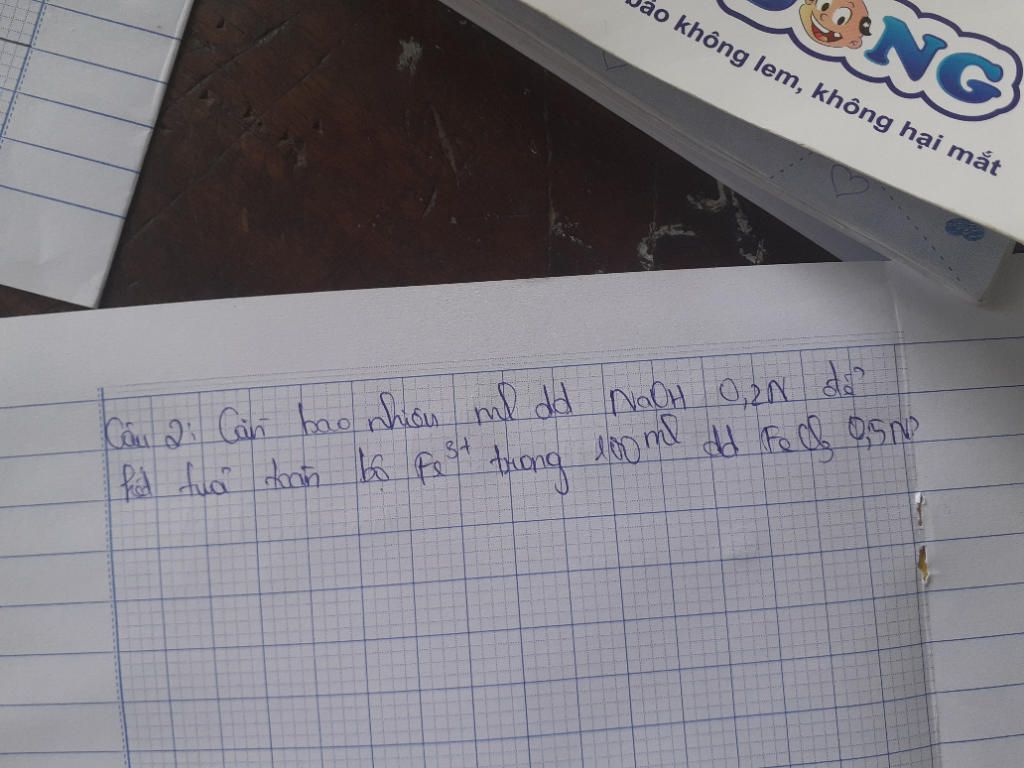 ONG
bảo không lem, không hại mắt
Câu 2: Cần bao nhiêu ml dd NaOH 0,2N để
kết tuả toàn bộ Fe³⁺ trong 100ml dd FeCl₃ 0,5N?